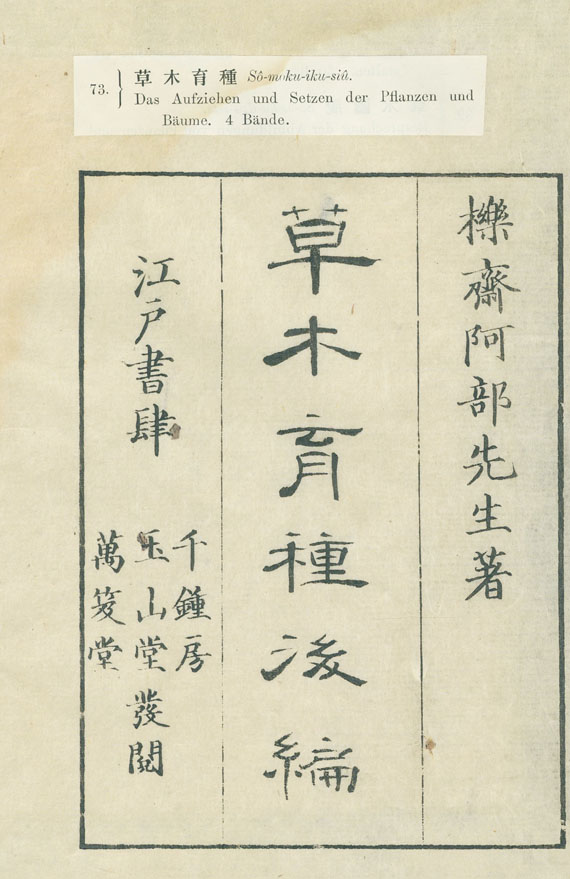 73. } 草木育種 Sô-moku-iku-siû.
Das Aufziehen und Setzen der Pflanzen und
Bäume. 4 Bände.
櫟齋阿部先生著
草木育種後編
江戸書肆
千鍾房
玉山堂發閲
萬笈堂